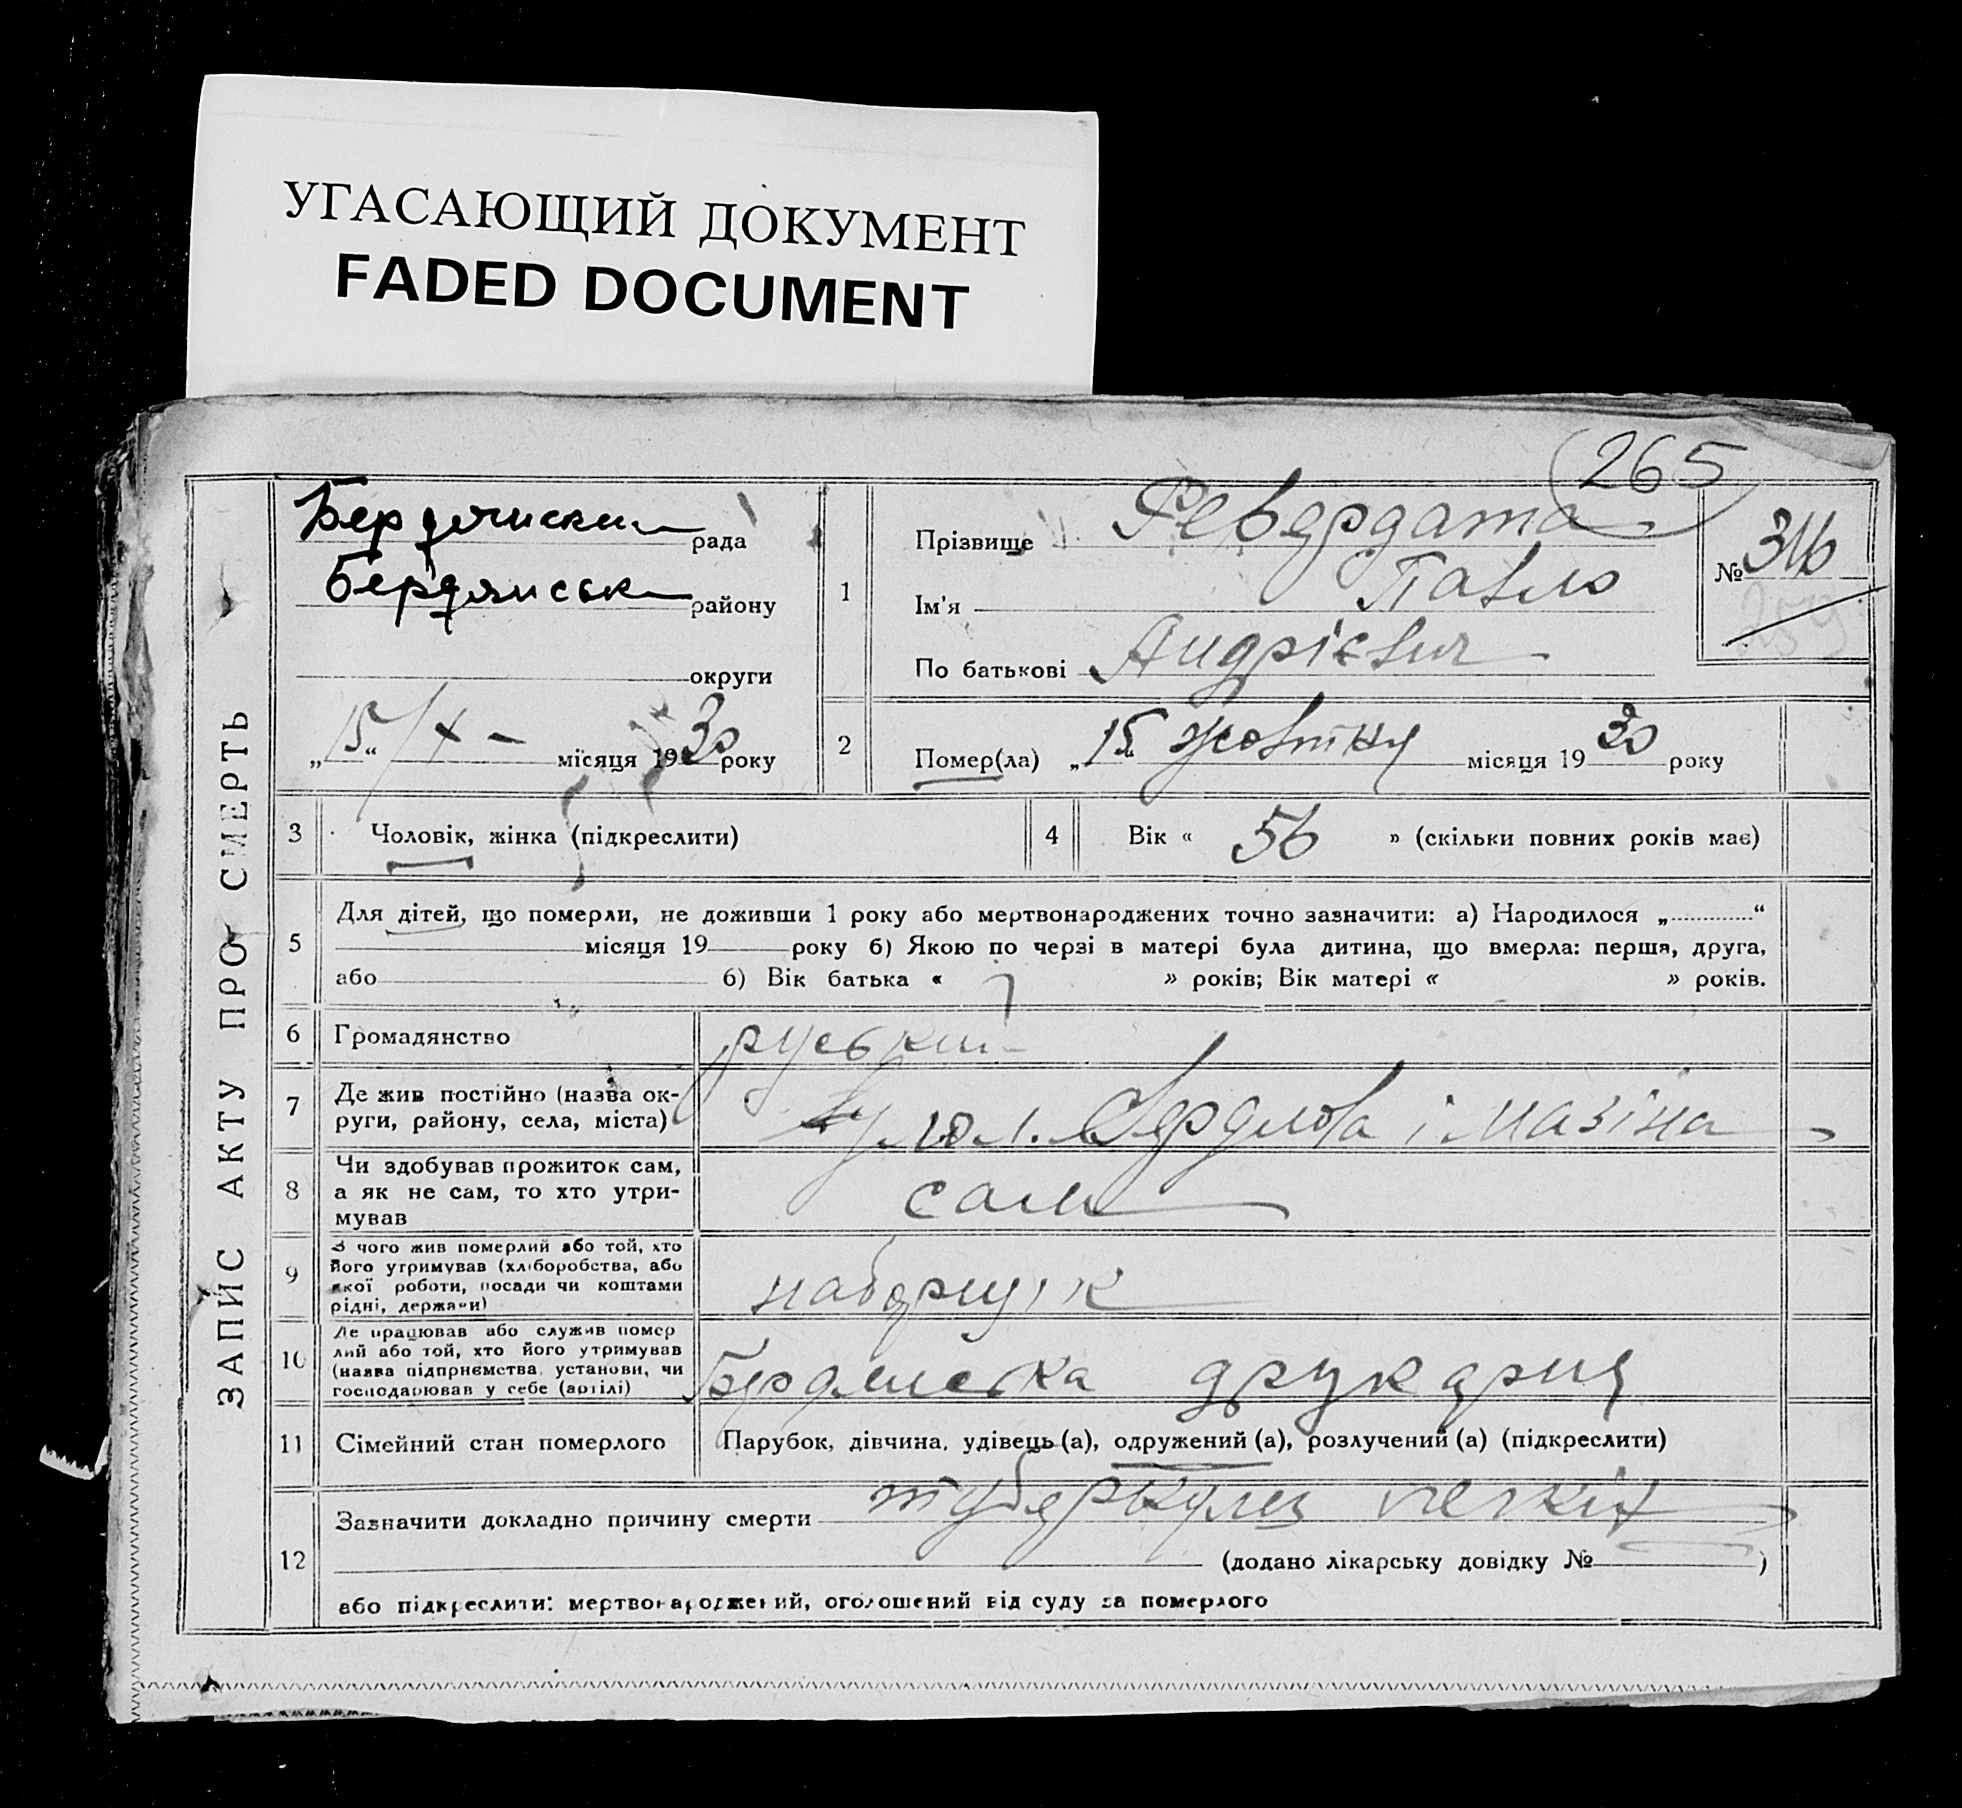 УГАСАЮЩИЙ ДОКУМЕНТ
FADED DOCUMENT
265
ЗАПИС АКТУ ПРО СМЕРТЬ
Бердянська рада
Бердянськ району
округи
„15“ X – місяця 1930 року
1
Прізвище
Ім'я Павло
По батькові Андрієвич
№ 316
259
2
Помер(ла) „15“ жовтня місяця 1930 року
3
Чоловік, жінка (підкреслити)
4
Вік « 56 » (скільки повних років має)
5
Для дітей, що померли, не доживши 1 року або мертвонароджених точно зазначити: а) Народилося „ “
місяця 19 року б) Якою по черзі в матері була дитина, що вмерла: перша, друга,
або б) Вік батька « » років; Вік матері « » років.
6
Громадянство руський
7
Де жив постійно (назва ок-
руги, району, села, міста)
Свердлова і Мазіна
8
Чи здобував прожиток сам,
а як не сам, то хто утри-
мував
сам
9
З чого жив померлий або той, хто
його утримував (хліборобства, або
якої роботи, посади чи коштами
рідні, держави)
наборщик
10
Де працював або служив помер
лий або той, хто його утримував
(назва підприємства, установи, чи
господарював у себе (артілі)
Бердянська друкарня
11
Сімейний стан померлого
Парубок, дівчина, удівець (а), одружений (а), розлучений (а) (підкреслити)
12
Зазначити докладно причину смерти туберкульоз легких
(додано лікарську довідку № )
або підкреслити: мертвонароджений, оголошений від суду за померлого